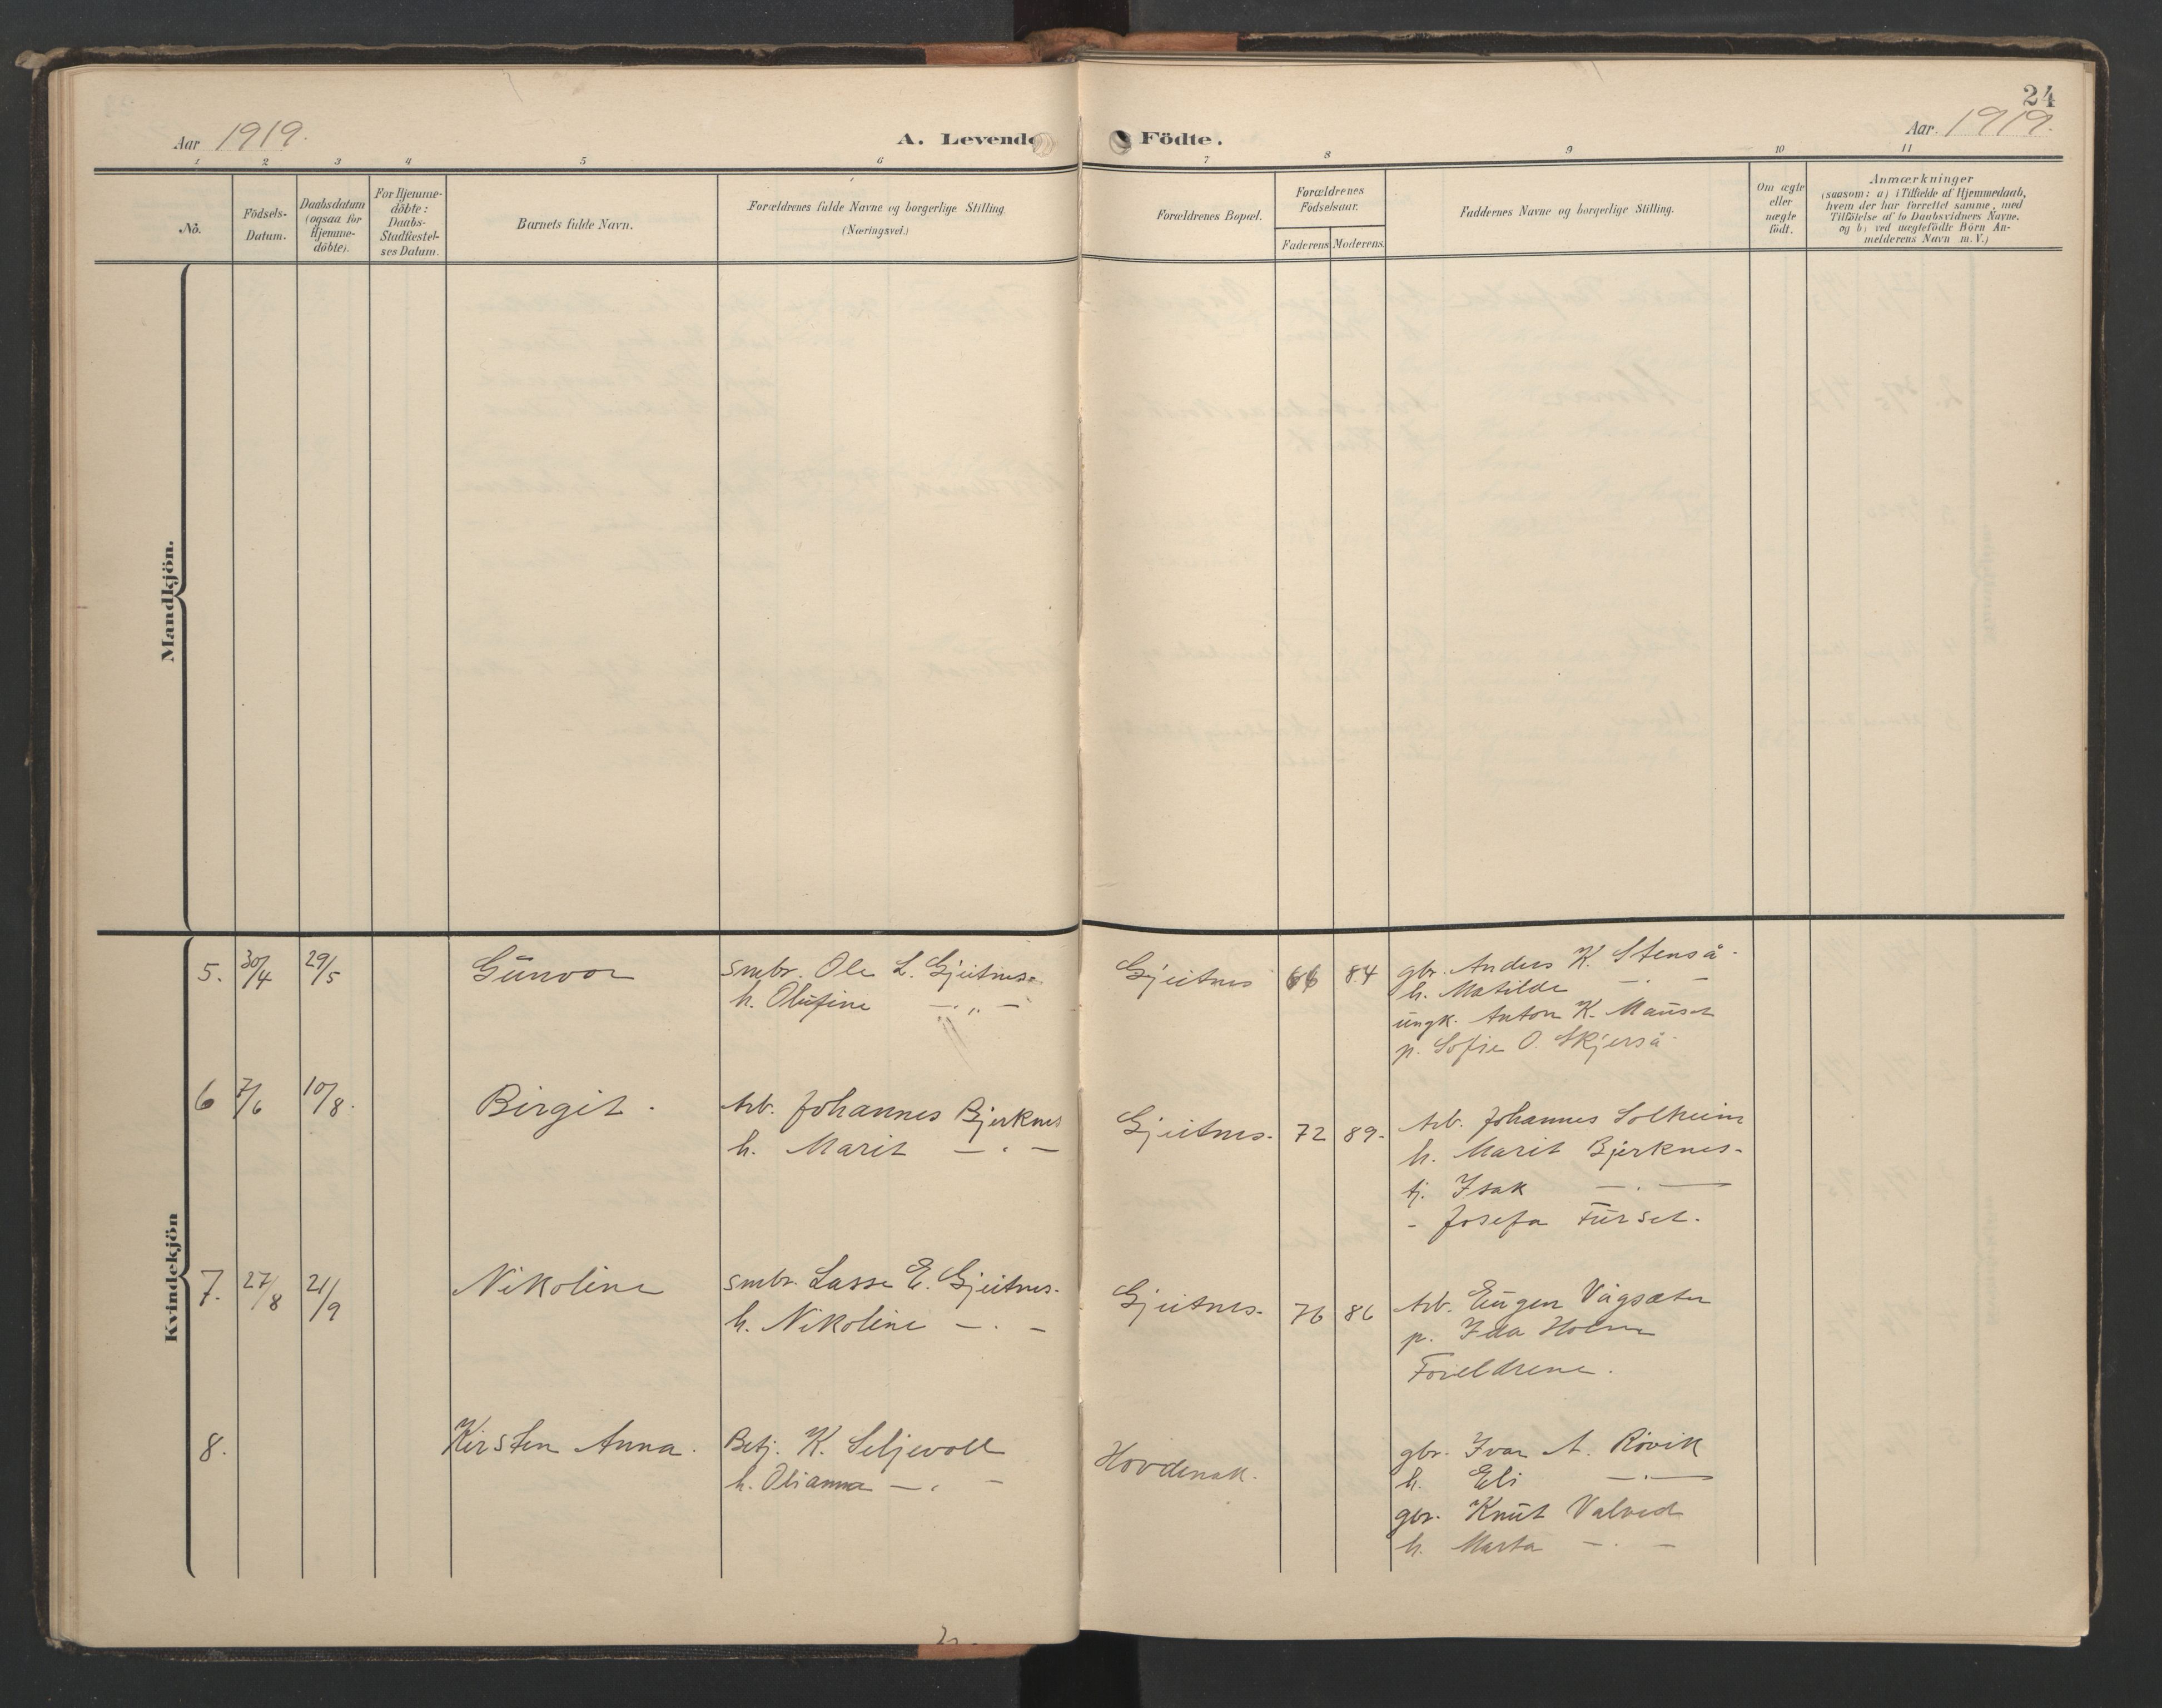 24
Aar 1919.
A. Levende Födte.
Aar. 1919.
1 2 3 4 5 6 7 8 9 10 11
No.
Födsels-Datum.
Daabsdatum (ogsaa for Hjemme-döbte).
For Hjemme-döbte: Daabs-Stadfæstel-ses Datum.
Barnets fulde Navn.
Forældrenes fulde Navne og borgerlige Stilling.
(Næringsvei.)
Forældrenes Bopæl.
Forældrenes Födselsaar.
Faderens Moderens
Faddernes Navne og borgerlige Stilling.
Om ægte eller uægte födt.
Anmærkninger
(saasom: a) i Tilfælde af Hjemmedaab,
hvem der har forrettet samme, med
Tilföielse af to Daabsvidners Navne,
og b) ved uægtefödte Börn An-
melderens Navn m.V.)
Mandkjön.
Kvindekjön
5. 30/4 29/5 Gunvor smbr. Ole L. Gjeitnes. Gjeitnes 66 84 gbr. Anders K. Stenså.
h. Olufine — „ — h. Matilde — . —
ungk. Anton K. Mauset
p. Sofie O. Skjerså.
6 7/6 10/8. Birgit. Arb. Johannes Bjerknes Gjeitnes. 72 89. Arb. Johannes Solheim
h. Marit — . — h. Marit Bjerknes.
tj. Isak — . —
- Josefa Furset.
7. 27/8 21/9 Nikoline smbr. Lasse E. Gjeitnes. Gjeitnes. 76 86 Arb. Eugen Vågsæter
h. Nikoline — . — p. Ida Holm
Foreldrene.
8. Kirsten Anna. Betj. K. Seljevoll Hovdenak. gbr. Ivar A. Rövik
h. Olianna — . — h. Eli — . —
gbr. Knut Valved
h. Marta — . —